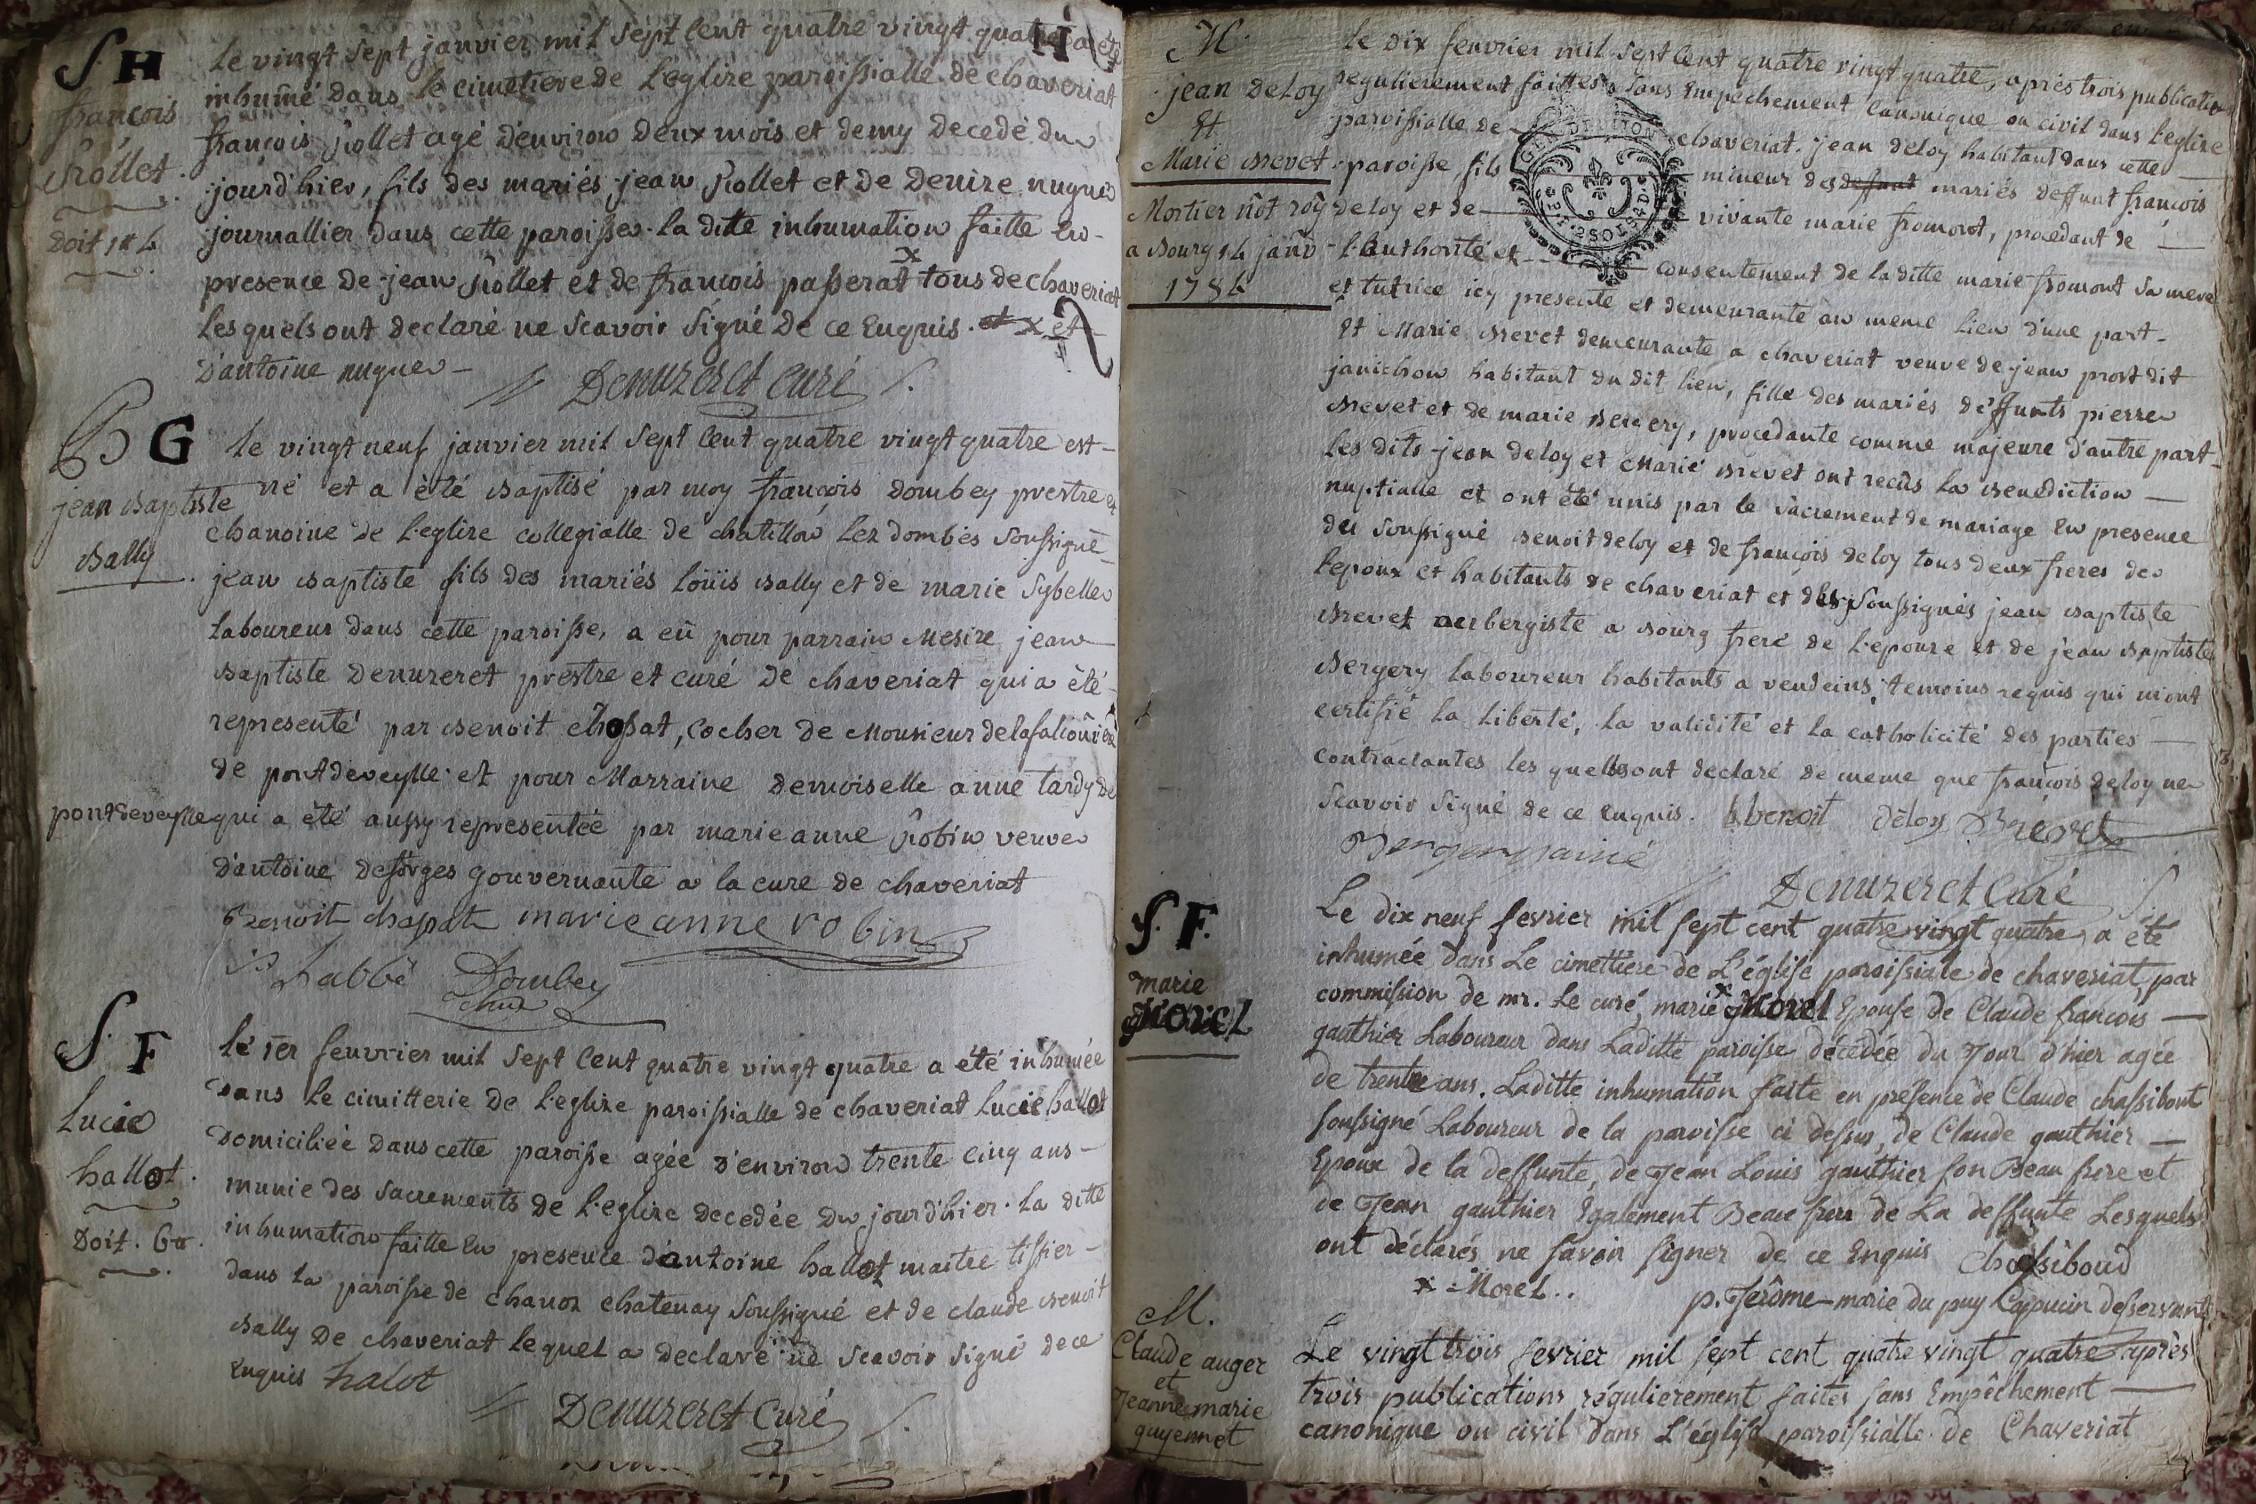 S. H
H
françois
Rollet.
Doit 1# 4
Le vingt sept janvier mil sept cent quatre vingt quatre a eté
inhumé dans le cimetiere de l'eglize paroissialle de chaveriat
françois Rollet agé d'environ deux mois et demy decedé du
jourd'hier, fils des mariés jean Rollet et de Denize nugue
journallier dans cette paroisse. la ditte inhumation faitte en
presence de jean Rollet et de françois passerat x tous de chaveriat
lesquels ont declaré ne scavoir signé de ce enquis. et x et
d'antoine nugue
Denuzeret curé
B G
jean Baptiste
Bally
Le vingt neuf janvier mil sept cent quatre vingt quatre est
né et a été Baptisé par moy françois Dombey prestre et
chanoine de l'eglize collegialle de chatillon lez dombes soussigné
jean Baptiste fils des mariés Loüis Bally et de marie Sybelle
laboureur dans cette paroisse, a eü pour parrain Mesire jean
Baptiste Denuzeret prestre et curé de chaveriat qui a été
representé par Benoit chossat, cocher de Monsieur
de pontdeveylle et pour Marraine demoiselle anne tardy de
pontdeveylle qui a été aussy representée par marie anne Robin veuve
d'antoine desorges gouvernante a la cure de chaveriat
Benoit chassat marie anne robin
L'abbé Dombey
chne
S. F
Lucie
hallot.
Doit. 6#.
Le 1er feuvrier mil sept cent quatre vingt quatre a été inhumée
dans le cimitterie de l'eglize paroissialle de chaveriat Lucie hallot
domiciliée dans cette paroisse agée d'environ trente cinq ans
munie des sacrements de l'eglize decedée du jourd'hier. la ditte
inhumation faitte en presence d'antoine hallot maitre tissier
dans la paroisse de chanoz chatenay soussigné et de claude Benoit
Bally de chaveriat lequel a declaré ne scavoir signé de ce
enquis halot
Denuzeret Curé
M.
jean deloy
Et
Marie Brevet
Mortier nôt roÿ
a Bourg 14 janv
1784
Le dix feuvrier mil sept cent quatre vingt quatre, après trois publications
regulierement faittes sans empechement canonique ou civil dans l'eglize
paroissialle de chaveriat. jean deloy habitant dans cette
paroisse, fils mineur des deffunt mariés deffunt françois
deloy et de vivante marie fromont, procedant de
l'authorité et consentement de la ditte marie fromont sa mere
et tutrice icy presente et demeurante au meme lieu d'une part.
Et Marie Brevet demeurante a chaveriat veuve de jean prost dit
janichon habitant du dit lieu, fille des mariés deffunts pierre
Brevet et de marie Bergery, procedante comme majeure d'autre part
les dits jean deloy et Marie Brevet ont recûs la Benediction
nuptialle et ont été unis par le sacrement de mariage en presence
du soussigné Benoit deloy et de françois deloy tous deux freres de
l'epoux et habitants de chaveriat et des soussignés jean Baptiste
Brevet aubergiste a Bourg frere de l'epouze et de jean Baptiste
Bergery laboureur habitants a vendeins temoins requis qui m'ont
certifié la liberté, la validité et la catholicité des parties
contractantes les quelles ont declaré de meme que françois deloy ne
scavoir signé de ce enquis. benoit deloy Brevet
Bergery ainé
Denuzeret Curé
GEN. DE DYON
S. F.
marie
Morel
Le dix neuf fevrier mil sept cent quatre vingt quatre, a été
inhumée dans le cimettiere de L'église paroissiale de chaveriat, par
commission de mr. Le curé, marie x Morel Epouse de Claude francois
gauthier Laboureur dans Laditte paroisse décédée du Jour d'hier agée
de trente ans. Laditte inhumation faite en présence de Claude chassibout
soussigné Laboureur de la paroisse ci dessus, de Claude gauthier
Epoux de la deffunte, de Jean Louis gauthier son Beau frere et
de Jean gauthier Egalement Beau frere de La deffunte Lesquels
ont déclarés ne savoir signer de ce Enquis Chassiboud
x Morel..
p. Jerôme-marie du puy Capucin desservant
M.
Claude auger
et
Jeanne marie
guyennet
Le vingt trois fevrier mil sept cent quatre vingt quatre après
trois publications régulierement faites sans Empêchement
canonique ou civil dans L'église paroissialle de Chaveriat